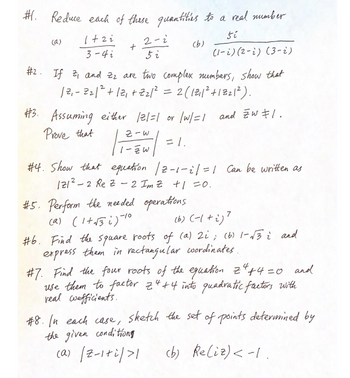 #1. Reduce each of these quantities to a real number
(a) (1+2i)/(3-4i) + (2-i)/(5i) (b) 5i/((1-i)(2-i)(3-i))
#2. If z₁ and z₂ are two complex numbers, show that
|z₁-z₂|²+|z₁+z₂|² = 2(|z₁|²+|z₂|²).
#3. Assuming either |z|=1 or |w|=1 and z̅w≠1.
Prove that |(z-w)/(1-z̅w)| = 1.
#4. Show that equation |z-1-i|=1 can be written as
|z|²-2 Re z -2 Im z +1 =0.
#5. Perform the needed operations
(a) (1+√3i)⁻¹⁰ (b) (-1+i)⁷
#6. Find the square roots of (a) 2i; (b) 1-√3i and
express them in rectangular coordinates
#7. Find the four roots of the equation z⁴+4=0 and
use them to factor z⁴+4 into quadratic factors with
real coefficients.
#8. In each case, sketch the set of points determined by
the given conditions
(a) |z-1+i|>1 (b) Re(iz)<-1.